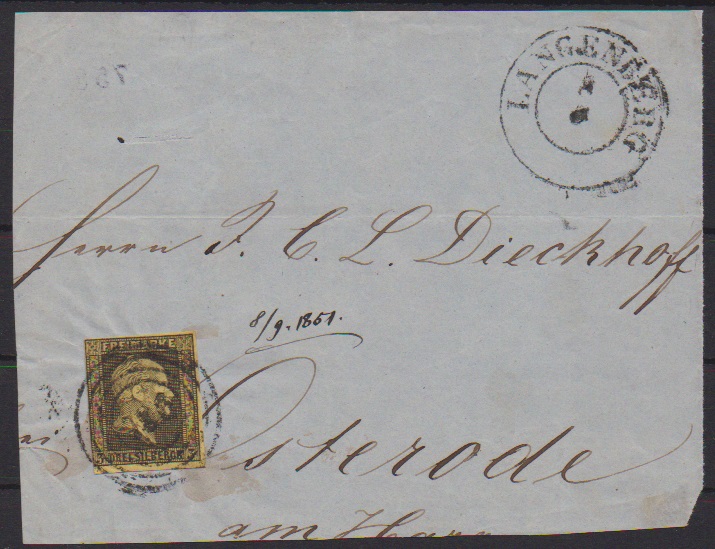 LANGENBERG
Herrn J. C. L. Dieckhoff
8/9. 1851.
FREIMARKE
3 DREI SILBERGR. 3
Osterode
am Harz